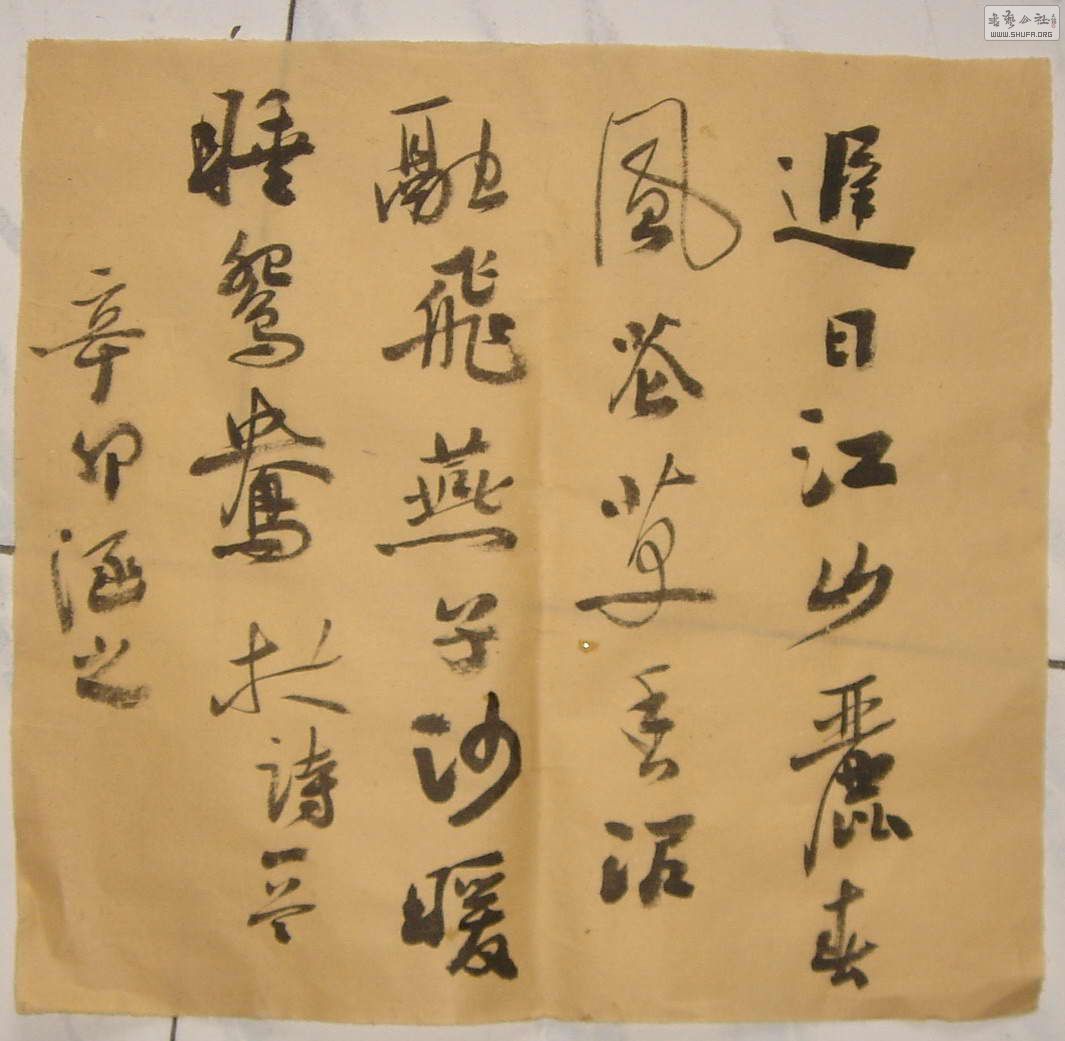 遲日江山麗春
風花草香泥
融飛燕子沙暖
睡鴛鴦 杜詩一首
辛卯涵之
書藝公社
WWW.SHUFA.ORG